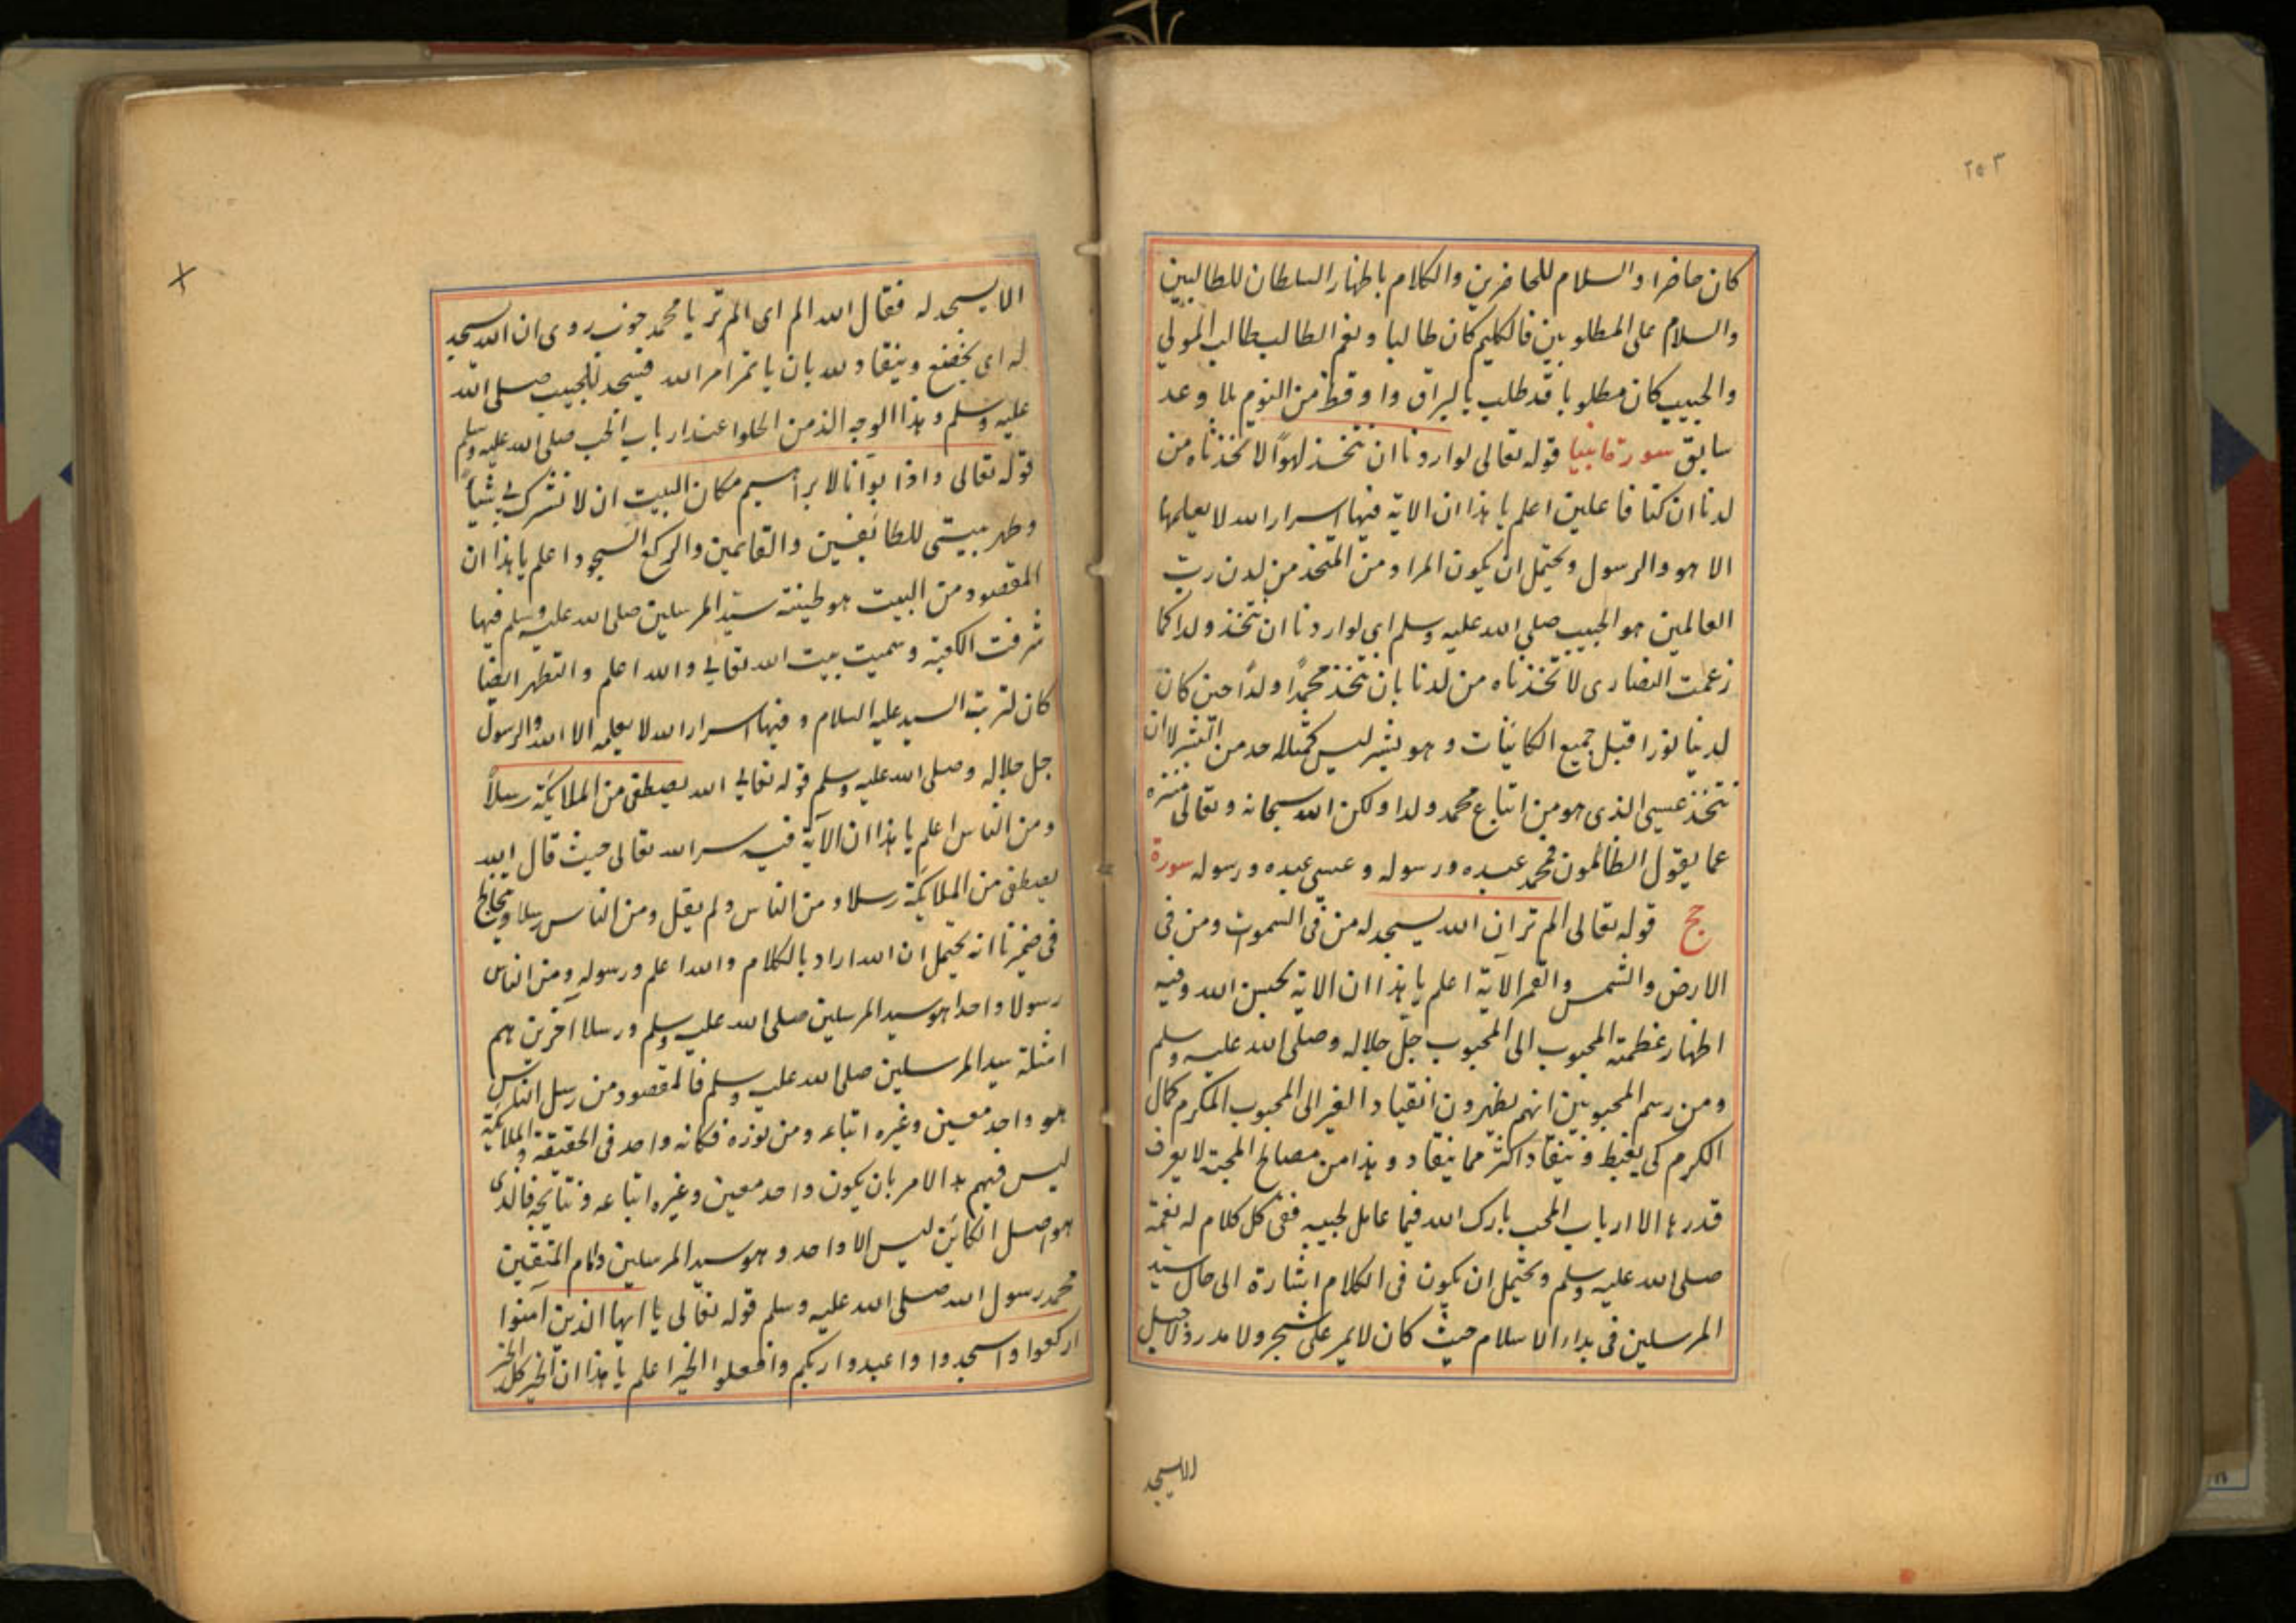 ٢٥٣
كان حاضرا والسلام للحاضرين والكلام باظهار السلطان للطالبين
والسلام على المطلوبين فالكليم كان طالبا ونعم الطالب طالب المولي
والحبيب كان مطلوبا قد طلب بالبراق واوقظ من النوم بلا وعد
سابق سورة انبيا قوله تعالى لو اردنا ان نتخذ لهوًا لاتخذناه من
لدنا ان كنا فاعلين اعلم يا هذا ان الاية فيها اسرار الله لا يعلمها
الا هو والرسول ويحتمل ان يكون المراد من المتخذ من لدن رب
العالمين هو الحبيب صلي الله عليه وسلم اي لو اردنا ان نتخذ ولدا كما
زعمت النصارى لاتخذناه من لدنا بان نتخذ محمدًا ولدًا حين كان
لدينا نورا قبل جميع الكائنات وهو بشر ليس كمثله احد من البشر لا ان
نتخذ عيسى الذى هو من اتباع محمد ولدا ولكن الله سبحانه وتعالى منزه
عما يقول الظالمون فمحمد عبده ورسوله وعيسى عبده ورسوله سورة
حج قوله تعالى الم تر ان الله يسجد له من فى السموت ومن فى
الارض والشمس والقمر الآية اعلم يا هذا ان الاية لحبيب الله وفيه
اظهار عظمته المحبوب الى المحبوب جل جلاله وصلى الله عليه وسلم
ومن رسم المحبوبين انهم يظهرون انقياد الغير الى المحبوب المكرم كمال
الكرم كى يغبط وينقاد اكثر مما ينقاد وهذا من مصالح المحبة لا يعرف
قدرها الا ارباب الحب بارك الله فيما عامل لحبيبه ففى كل كلام له نغمة
صلى الله عليه وسلم ويحتمل ان يكون فى الكلام اشارة الى حال سيد
المرسلين فى بداء الاسلام حيث كان لا يمر على شجر ولا مدر ولا جبل
الا يسجد
الا يسجد له فقال الله الم اى الم تر يا محمد حين روى ان الله يسجد
له اى يخضع وينقاد لله بان ياتمر امر الله فيسجد للحبيب صلى الله
عليه وسلم وهذا الوجه الذ من الحلوا عند ارباب الحب صلى الله عليه وسلم
قوله تعالى واذا بوأنا لابراهيم مكان البيت ان لا تشرك بى شيأ
وطهر بيتى للطائفين والقائمين والركع السجود اعلم يا هذا ان
المقصود من البيت هو طينته سيد المرسلين صلى الله عليه وسلم فيها
شرفت الكعبة وسميت بيت الله تعالي والله اعلم والتطهر ايضا
كان لتربة السيد عليه السلام وفيها اسرار الله لا يعلمه الا الله والرسول
جل جلاله وصلى الله عليه وسلم قوله تعالي الله يصطفى من الملائكة رسلاً
ومن الناس اعلم يا هذا ان الآية فيه سر الله تعالى حيث قال الله
يصطفى من الملائكة رسلا ومن الناس ولم يقل ومن الناس رسلا ويختالج
فى ضميرنا انه يحتمل ان الله اراد بالكلام والله اعلم ورسوله ومن الناس
رسولا واحدا هو سيد المرسلين صلى الله عليه وسلم ورسلا آخرين هم
امثلة سيد المرسلين صلى الله عليه وسلم فالمقصود من رسل الناس
هو واحد معين وغيره اتباعه ومن نوره فكانه واحد فى الحقيقة والملائكة
ليس فيهم هذا الامر بان يكون واحد معين وغيره اتباعه ونتايجه فالذى
هو اصل الكائن ليس الا واحد وهو سيد المرسلين وامام المتقين
محمد رسول الله صلى الله عليه وسلم قوله تعالى يا ايها الذين آمنوا
اركعوا واسجدوا واعبدوا ربكم وافعلوا الخير اعلم يا هذا ان الخير كل الخير